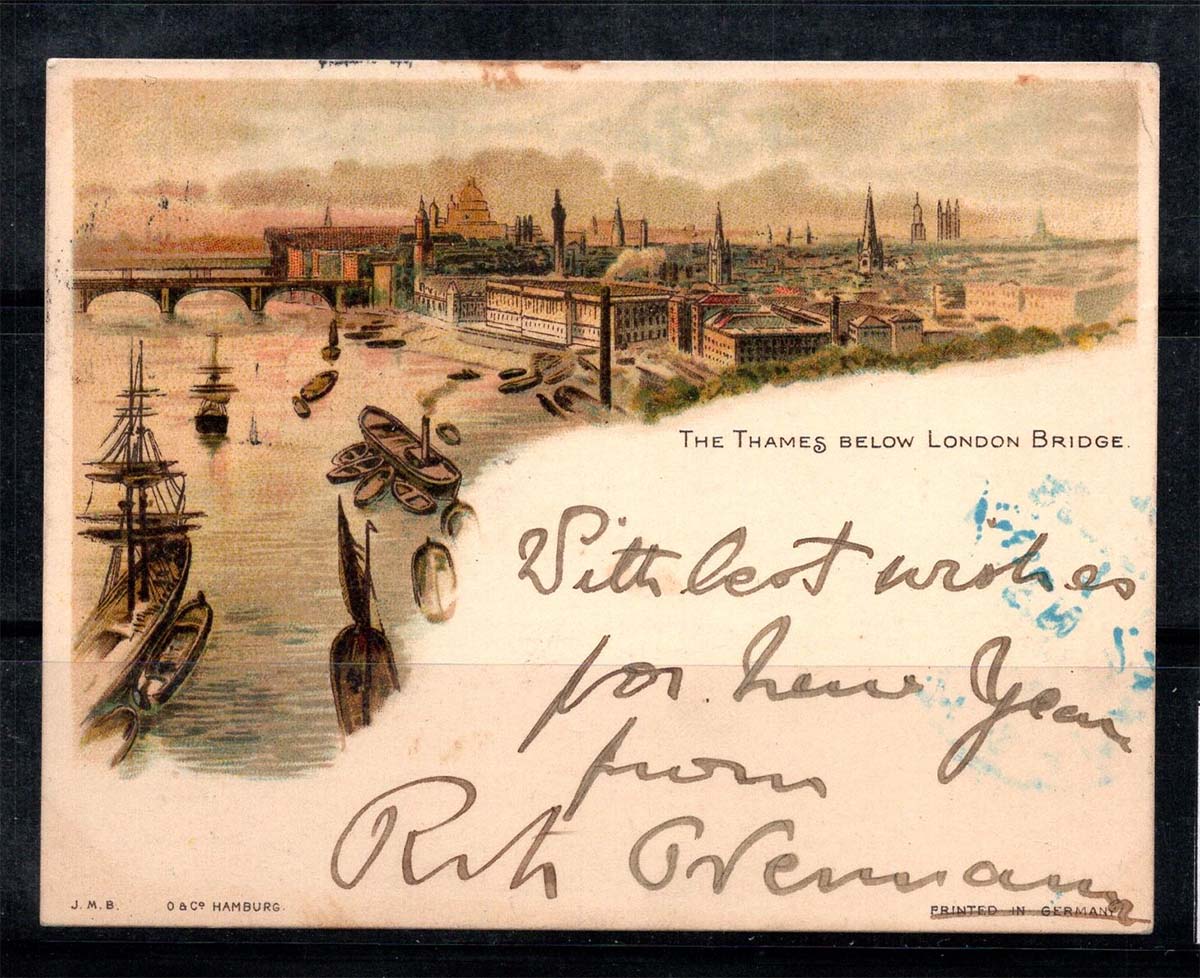 THE THAMES BELOW LONDON BRIDGE.
With best wishes
for new Year
from
J. M. B. O & Cº HAMBURG.
PRINTED IN GERMANY